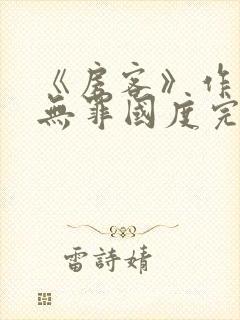 《房客》作
無罪國度完
雷詩婧